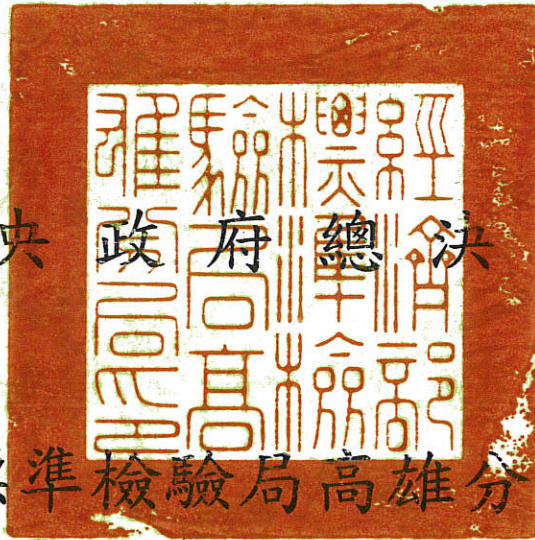 經濟部
標準檢
驗局高
雄分局印
央政府總決
準檢驗局高雄分